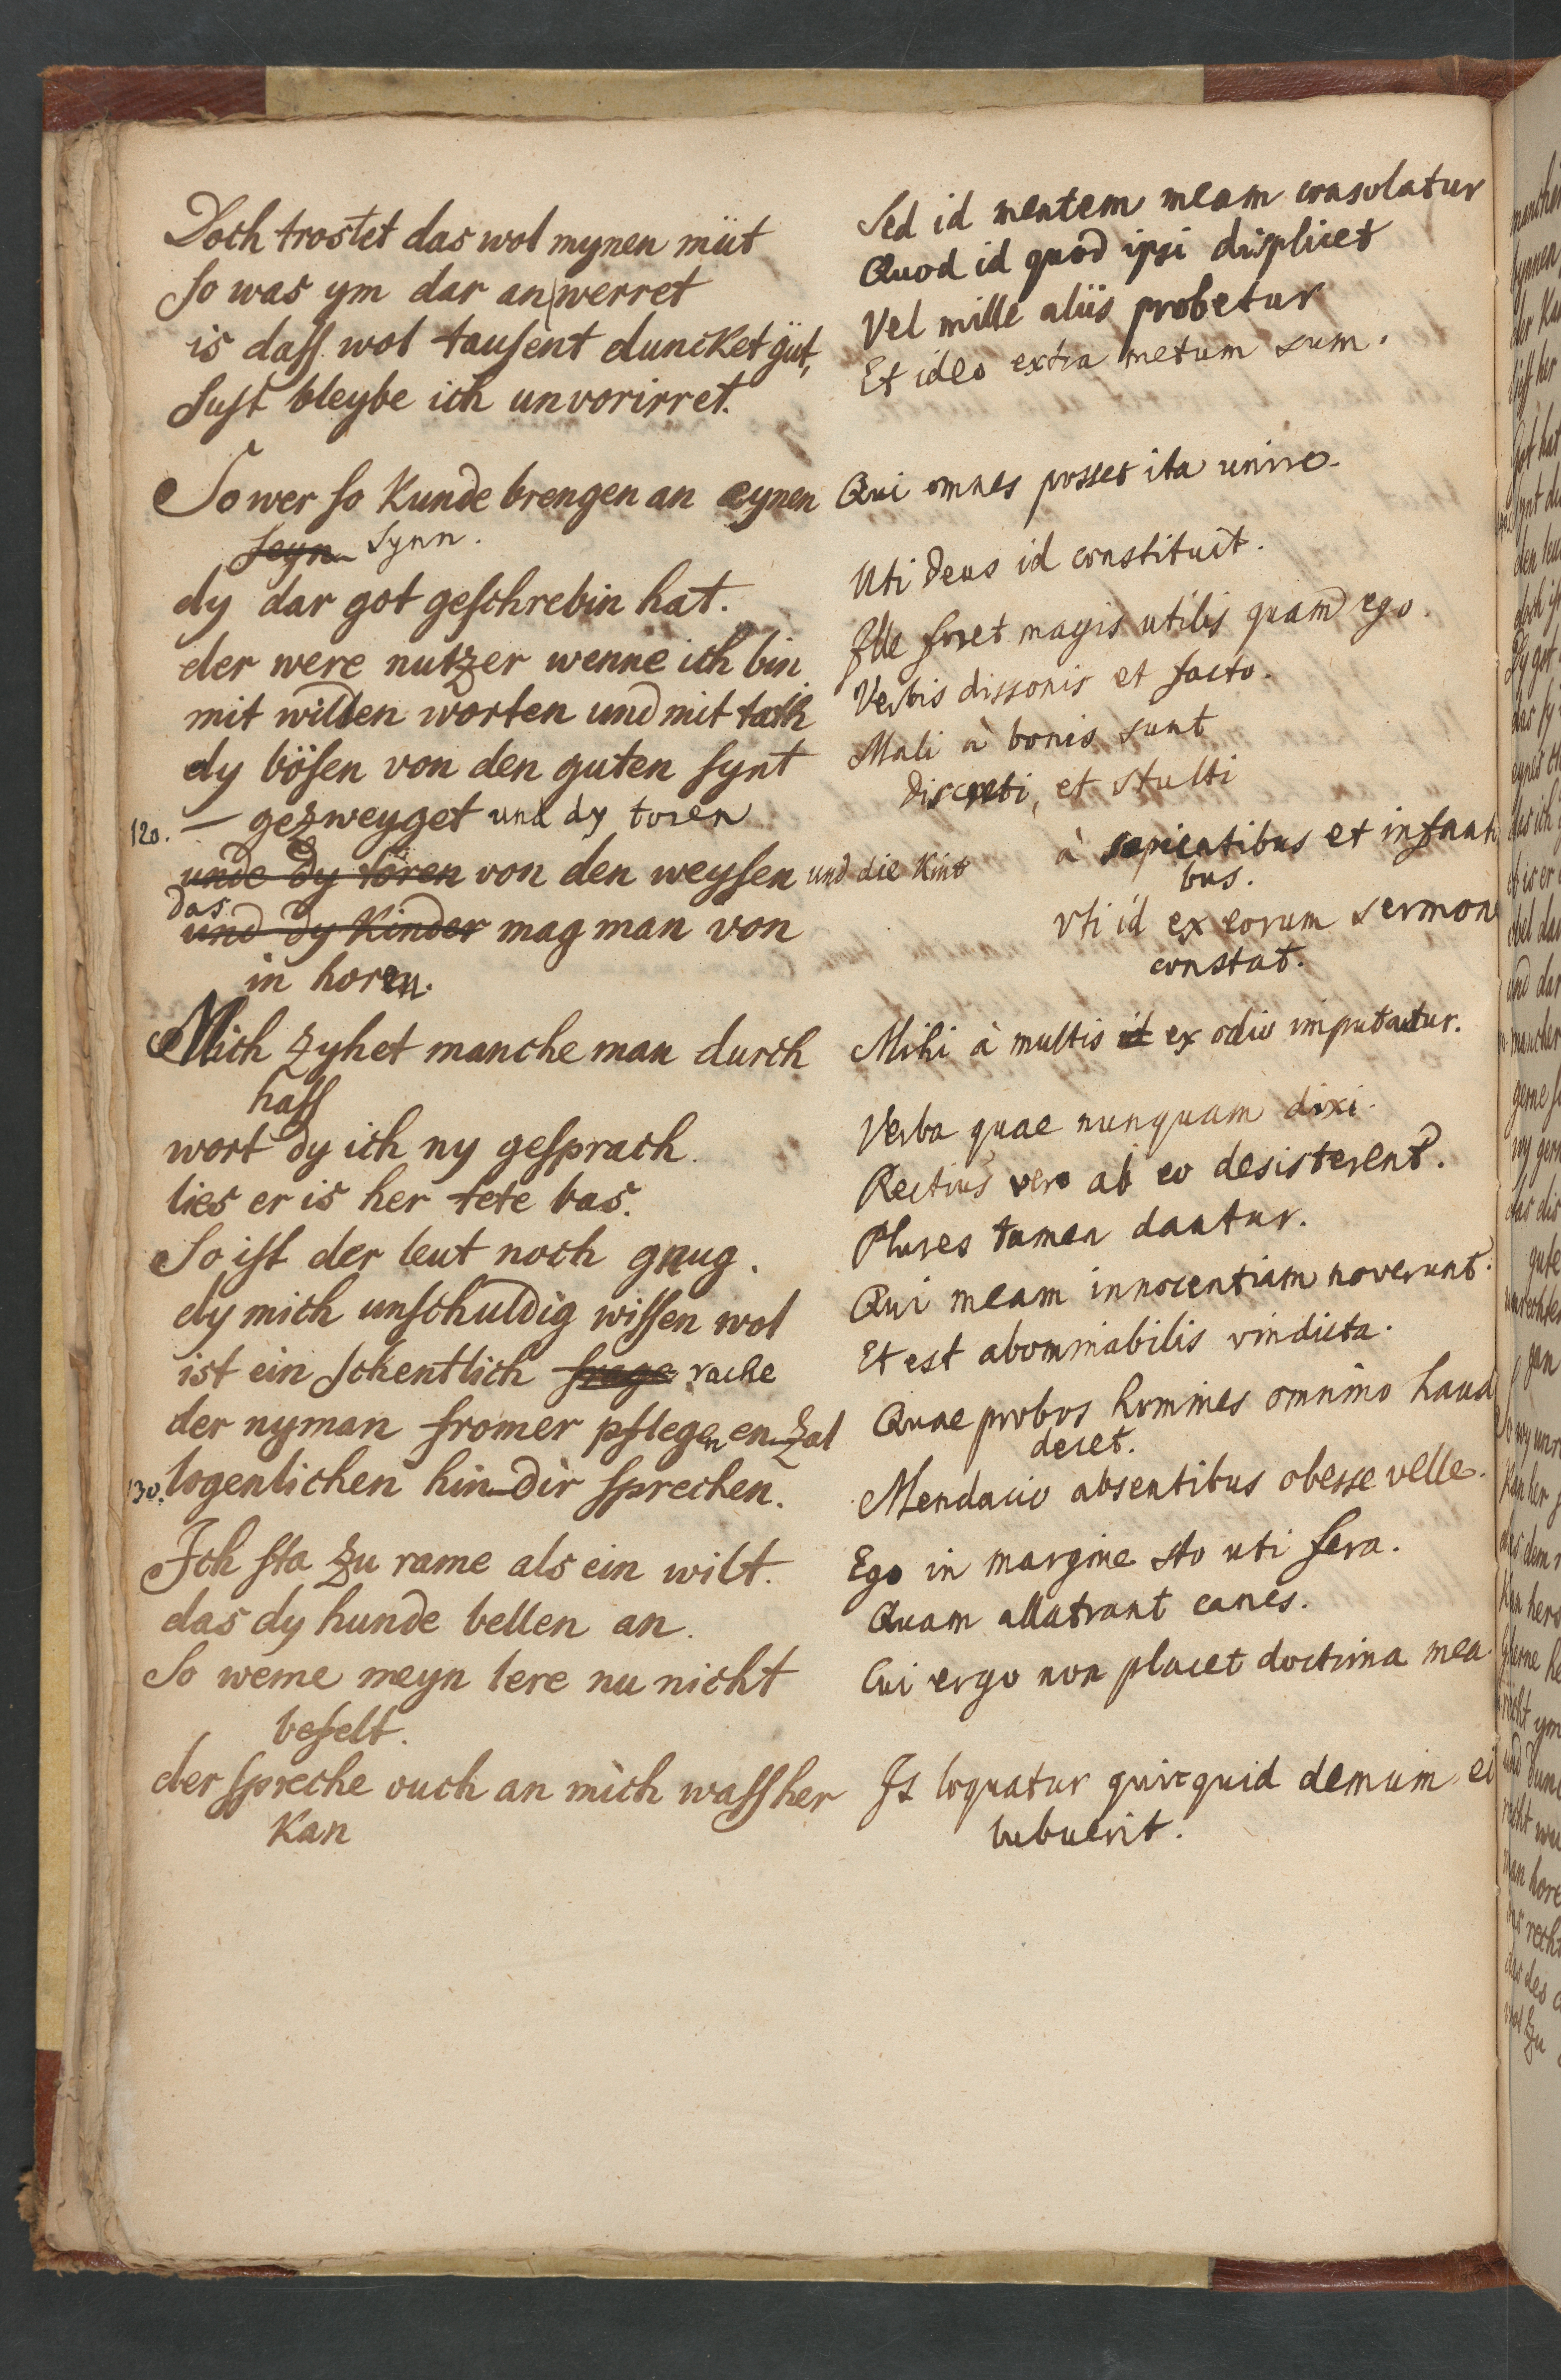 Doch trostet das wol mynen müt
so was ym dar an werret
is dass wol tausent duncket güt,
Sust bleybe ich unvorirret.
So wer so kunde brengen an eynen
seyn synn.
dy dar got geschrebin hat.
der were nutzer wenne ich bin
mit wilden worten und mit tath
dy bösen von den guten synt
120. — gezweyget und dy toren
unde dy toren von den weysen und die kint
das
und dy kinder mag man von
in horen.
Mich zyhet manche man durch
hass
wort dy ich ny gesprach.
lies er is her tete bas.
So ist der leut noch gnug.
dy mich unschuldig wissen wol
ist ein schentlich frage rache
der nyman fromer pflegen en-zal
130. logenlichen hin-dir sprechen.
Ich sta zu rame als ein wilt.
das dy hunde bellen an.
So weme meyn lere nu nicht
befelt.
der spreche ouch an mich wass her
kan
Sed id mentem meam consolatur
Quod id quod ipsi displicet
Vel mille aliis probetur
Et ideo extra metum sum.
Qui omnes posset ita unire
Uti Deus id constituit.
Ille foret magis utilis quam ego.
Verbis dissonis et facto.
Mali à bonis sunt
discreti, et stulti
à sapientibus et infanti
bus.
vti id ex eorum sermon
constat.
Mihi à multis id ex odio imputantur.
Verba quae nunquam dixi.
Rectius vero ab eo desisterent.
Plures tamen dantur.
Qui meam innocentiam noverunt.
Et est abominabilis vindicta.
Quae probos homines omnino haud
decet.
Mendacio absentibus obesse velle.
Ego in margine sto uti fera.
Quam allatrant canes.
Cui ergo non placet doctrina mea
Is loquatur quicquid demum ei
lubuerit.